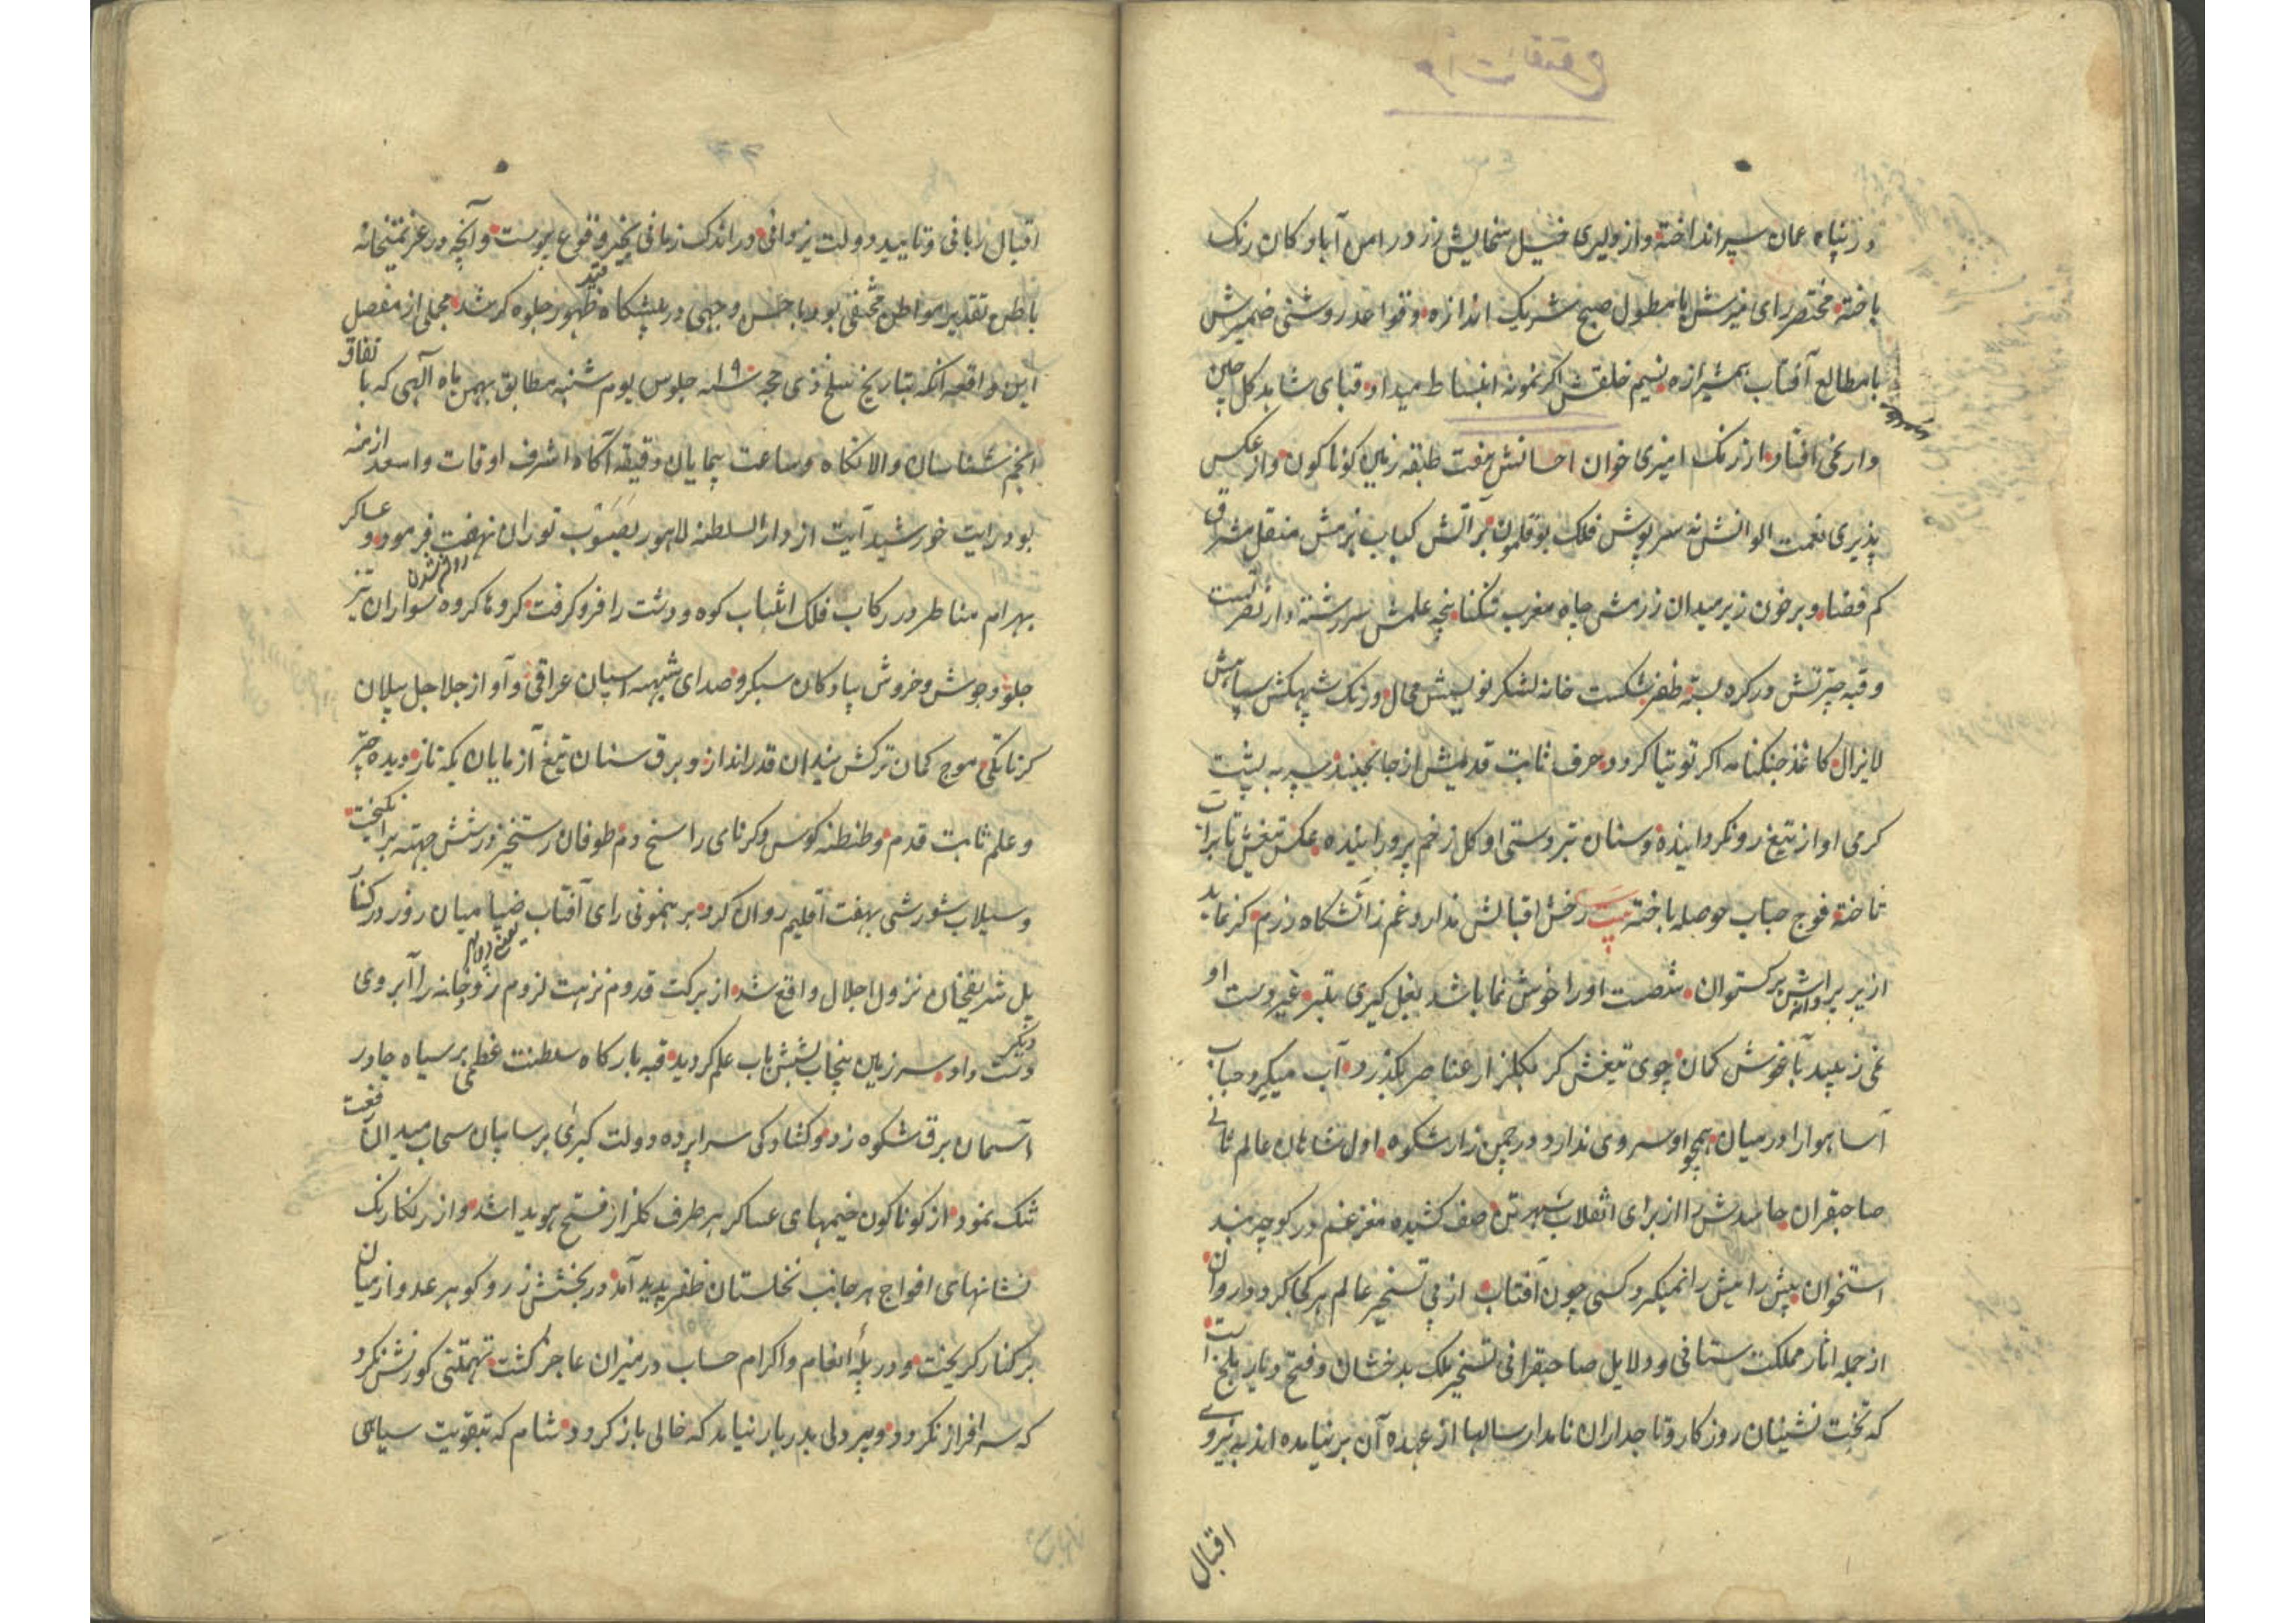 در پناه عمان سپر انداخته و از دلیری خیل سخایش زر در امن آباد کان رنک
باخته مختصر رای منیرش با مطول صبح شریک اندازه و قواعد روشنی ضمیرش
با مطالع آفتاب همشیرازه نسیم خلقش اکر نمونه انبساط میداد قبای شاهد کل چین
وار نمی افتاد از رنک امیزی خوان احسانش هفت طبقه زمین کوناکون و از عکس
پذیری نعمت الوانش نه سرپوش فلک بوقلمون بر آتش کباب بزمش منقل مشرق
کم فضا و بر خون زیر میدان رزمش چاه مغرب تنکنا پنجه علمش سررشته دار نصرت
و قبه چترش در کره بسته ظفر شکست خانه لشکر نویسش محال و رنک شبهکش سپاهش
لایزال کاغذ جنکنامه اکر توتیا کردد حرف ثابت قدمیش از جا نجنبد سپر به پشت
کرمی او از تیغ رو نکردانیده و سنان تردستی او کل زخم پرورانیده عکس تیغش تا بر آب
تاخته فوج حباب حوصله باخته بیت رخش اقبالش ندارد غم ز آتشکاه رزم کر نماید
از پر پروانه اش برکستوان شصت او را خوش نما باشد بغل کیری بتیر غیر دست او
نمی زیبد بآغوش کمان جوی تیغش کر بکلزار عناصر بکذرد آب میکیرد حباب
آسا هوا را در میان همچو او سروی ندارد در چمن زار شکوه اول شاهان عالم ثانی
صاحبقران حاسدش را از برای انقلاب شهر تن صف کشیده مغز غم در کوچه بند
استخوان پیش رایش را نمیکیرد کسی چون آفتاب از پی تسخیر عالم هر کجا کردد روان
از جمله اثار مملکت ستانی و دلایل صاحبقرانی تسخیر ملک بدخشان و فتح دیار بلخ است
که تخت نشینان روزکار و تاجداران نامدار سالها از عهده آن بر نیامده اند به نیروی
اقبال
اقبال ربانی و تایید دولت یزدانی در اندک زمانی بخیر وقوع پیوست و آنچه در عزیمتخانه
باطن تقدیر مواطن مخفی بود باحسن وجهی در پیشکاه ظهور جلوه کر شد مجملی از مفصل
این واقعه انکه بتاریخ سلخ ذی حجه ۱۹ سنه جلوس یوم شنبه مطابق بهمن ماه آلهی که با تفاق
انجم شناسان والا نکاه و ساعت پیمایان دقیقه آکاه اشرف اوقات و اسعد ازمنه
بود رایت خورشید آیت از دار السلطنه لاهور بصوب توران نهضت فرمود و عساکر
بهرام مناظر در رکاب فلک انتساب کوه و دشت را فرو کرفت کروها کروه سواران تیز
جلو و جوش و خروش پیادکان سبکرو صدای شیهه اسپان عراقی و آواز جلاجل پیلان
کرناتکی موج کمان ترکش بندان قدرانداز و برق سنان تیغ آزمایان یکه تاز دیده چتر
و علم ثابت قدم و طنطنه کوس و کرنای راسخ دم طوفان رستخیز در شش جهته برانکیخت
و سیلاب شورشی بهفت اقلیم روان کرد برهنمونی رای آفتاب ضیا میان روز در کنار
پل شریفخان نزول اجلال واقع شد از برکت قدوم نزهت لزوم رودخانه را آبروی دیکر
دست داد سرزمین پنجاب بشش باب علم کردید قبه بارکاه سلطنت عظمی بر سیاه چادر
آسمان برق شکوه زد و کشادکی سراپرده دولت کبری بر سایبان سحاب میدان رفعت
تنک نمود از کوناکون خیمهای عساکر هر طرف کلزار فتح هویدا شد و از رنکارنک
نشانهای افواج هر جانب نخلستان ظفر پدید آمد در بخشش زر و کوهر عدد از میان
بر کنار کریخت و در پلهٔ انعام و اکرام حساب در میزان عاجز کشت تهمتنی کورنش نکرد
که سر افراز نکردد و پر دلی بدربار نیامد که خالی باز کردد شام که بتقویت سیاهی